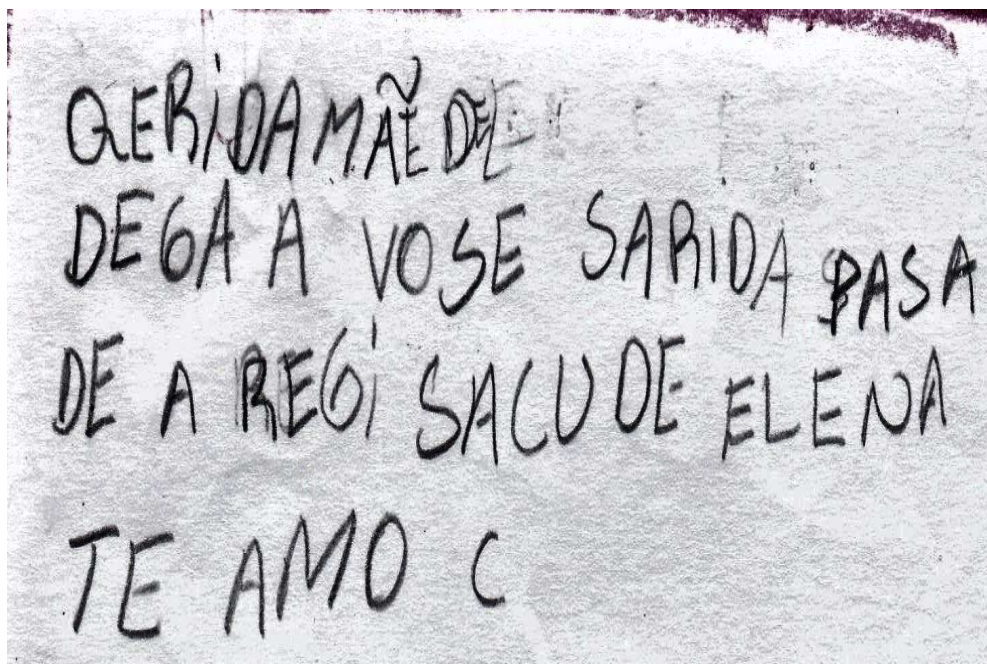 QERIDA MÃE DEL
DEGA A VOSE SARIDA PASA
DE A REGI SACUDE ELENA
TE AMO C